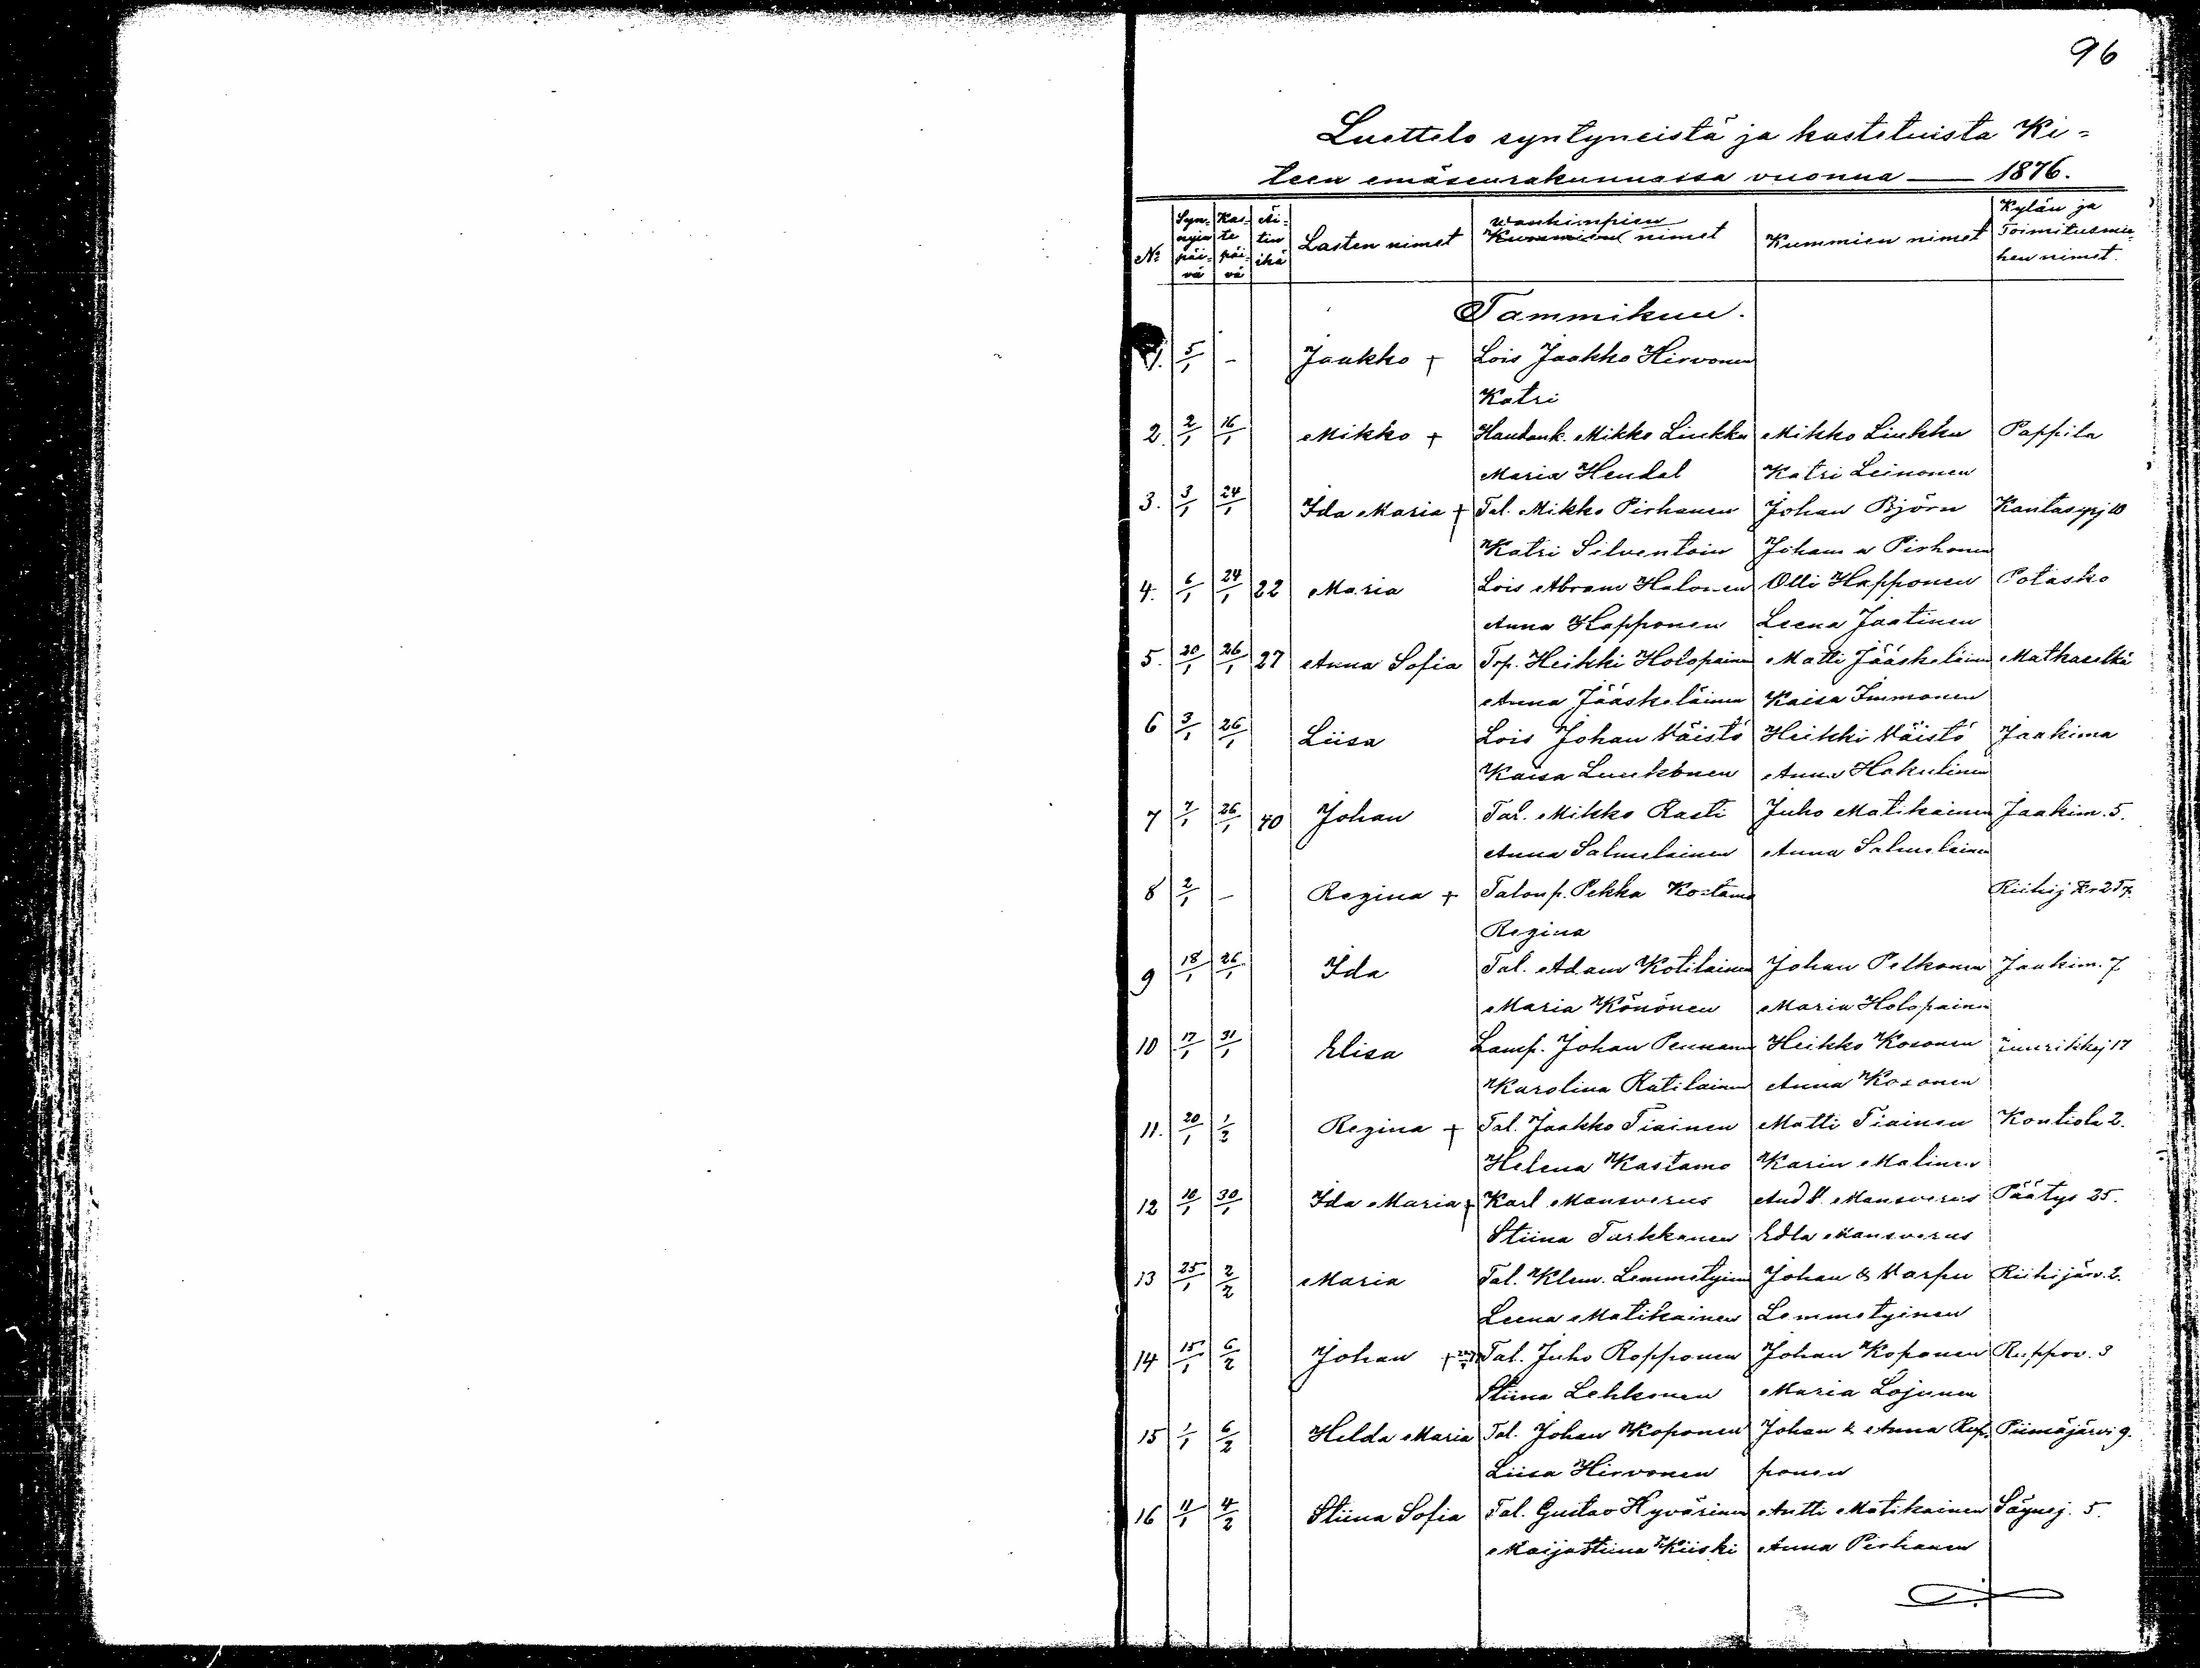 96
Luettelo syntyneistä ja kastetuista Ki=
teen emäseurakunnassa vuonna — 1876.
No Syn-nyin päi-vä Kas-te päi-vä Äi-tin ikä Lasten nimet Wanhimpien Kummien nimet Kummien nimet Kylän ja Toimitusmie-hen nimet.
Tammikuu.
1. 5/1 – Jaakko + Lois Jaakko Hirvonen
Katri
2. 2/1 16/1 Mikko + Haudank. Mikko Liukku Mikko Liukku Pappila
Maria Hendal Katri Leinonen
3. 3/1 24/1 Ida Maria + Tal. Mikko Pirhonen Johan Björn Kantosyrj 10
Katri Silventoin Johan a Pirhonen
4. 6/1 24/1 22 Maria Lois Abram Halonen Olli Happonen Potasko
Anna Happonen Leena Jaatinen
5. 20/1 26/1 27 Anna Sofia Trp. Heikki Holopainen Matti Jääskeläinen Matkaselkä
Anna Jääskeläinen Kaisa Immonen
6 3/1 26/1 Liisa Lois Johan Väistö Heikki Väistö Jaakima
Kaisa Luukkonen Anna Hakulinen
7 7/1 26/1 40 Johan Tal. Mikko Rasti Juho Matikainen Jaakim. 5.
Anna Salmelainen Anna Salmelainen
8 2/1 – Regina + Talonp. Pekka Kostamo Riihij 2
Regina
9 18/1 26/1 Ida Tal. Adam Kotilainen Johan Pelkonen Jaakim. 7
Maria Könönen Maria Holopainen
10 17/1 31/1 Elisa Lamp. Johan Pennanen Heikko Kosonen Juurikkaj 17
Karolina Ratilainen Anna Kosonen
11. 20/1 1/2 Regina + Tal. Jaakko Tiainen Matti Tiainen Kontiola 2.
Helena Kastamo Karin Malinen
12 10/1 30/1 Ida Maria + Karl Mansverus And Mansverus Päätys 25.
Stiina Turkkanen Edla Mansverus
13 25/1 2/2 Maria Tal. Klem. Lemmetyinen Johan & Varpu Riihijärv. 2.
Leena Matikainen Lemmetyinen
14 15/1 6/2 Johan + Tal. Juho Ropponen Johan Koponen Ruppov. 3
Stiina Lehkonen Maria Lojunen
15 1/1 6/2 Helda Maria Tal. Johan Koponen Johan & Anna Rop- Piimäjärvi 9.
Liisa Hirvonen ponen
16 11/1 4/2 Stiina Sofia Tal. Gustav Hyvärinen Antti Matikainen Säynej. 5.
Maijastiina Kiiski Anna Pirhonen